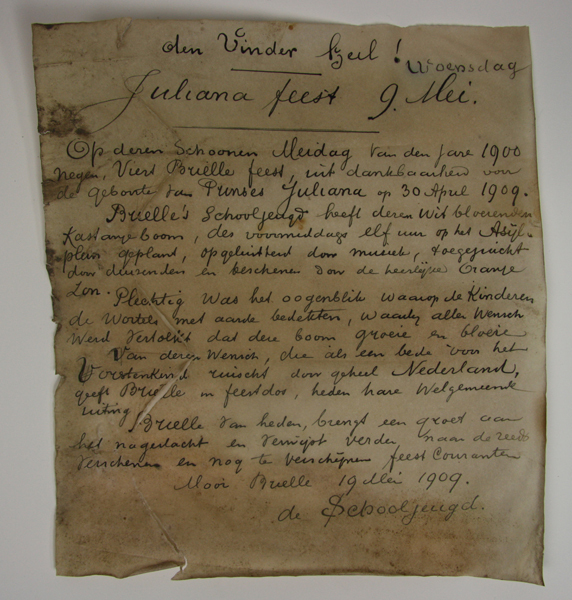 den Vinder heil!
Woensdag
Juliana feest 9. Mei.
Op deren Schoonen Meidag van den Jare 1900
negen, Viert Brielle feest, uit dankbaarheid voor
de geboorte van Prinses Juliana op 30 April 1909.
Brielle's Schooljeugd heeft deren Wit bloeienden
Kastanjeboom, des voormiddags elf uur op het Asijl-
plein geplant, opgeluisterd door muziek, toegejuicht
door duizenden en beschenen door de heerlijke Oranje
Zon.
Plechtig Was het oogenblik waarop de Kinderen
de Wortels met aarde bedekten, waarbij aller Wensch
Werd Vertolkt dat dere boom groeie en bloeie
Van deren Wensch, die als een bede voor het
Vorstenkind ruischt door geheel Nederland,
geeft Brielle in feestdos, heden hare Welgemeende
uiting.
Brielle Van heden, brengt een groet aan
het nageslacht en Verwijst Verder, naar de reeds
Verschenen en nog te Verschijnen feest Couranten
Mooi Brielle 19 Mei 1909.
de Schooljeugd.